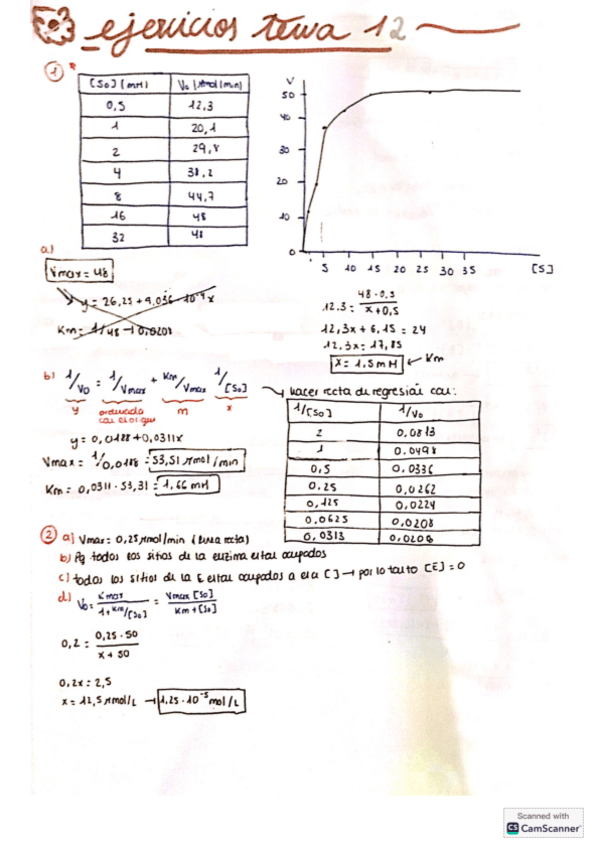 ejercicios tema 12
1
[So] (mM) V₀ (µmol/min)
0,5 12,3
1 20,1
2 29,8
4 38,2
8 44,7
16 48
32 48
V
50
40
30
20
10
0
5 10 15 20 25 30 35 [S]
a)
Vmax = 48
Km = 1/48 → 0,0208
12.3 = 48·0,5 / x+0,5
12,3x + 6,15 = 24
12.3x = 17,85
x = 1,5 mM ← Km
b) 1/V₀ = 1/Vmax + Km/Vmax 1/[So]
y ordenada m x
y = 0,0188 + 0,0311x
Vmax = 1/0,0188 = 53,51 µmol/min
Km = 0,0311 · 53,31 = 1,66 mM
→ hacer recta de regresión con:
1/[So] 1/V₀
2 0,0813
1 0.0498
0,5 0,0336
0.25 0,0262
0,125 0,0224
0.0625 0,0208
0,0313 0,0208
2 a) Vmax = 0,25 µmol/min (línea recta)
b) Pq todos los sitios de la enzima están ocupados
c) todos los sitios de la E están ocupados a esa [ ] → por lo tanto [E] = 0
d) V₀ = Vmax / 1+Km/[So] = Vmax [So] / Km + [So]
0,2 = 0,25 · 50 / x + 50
0,2x = 2,5
x = 12,5 µmol/L → 1,25 · 10⁻⁵ mol/L
Scanned with
CS CamScanner